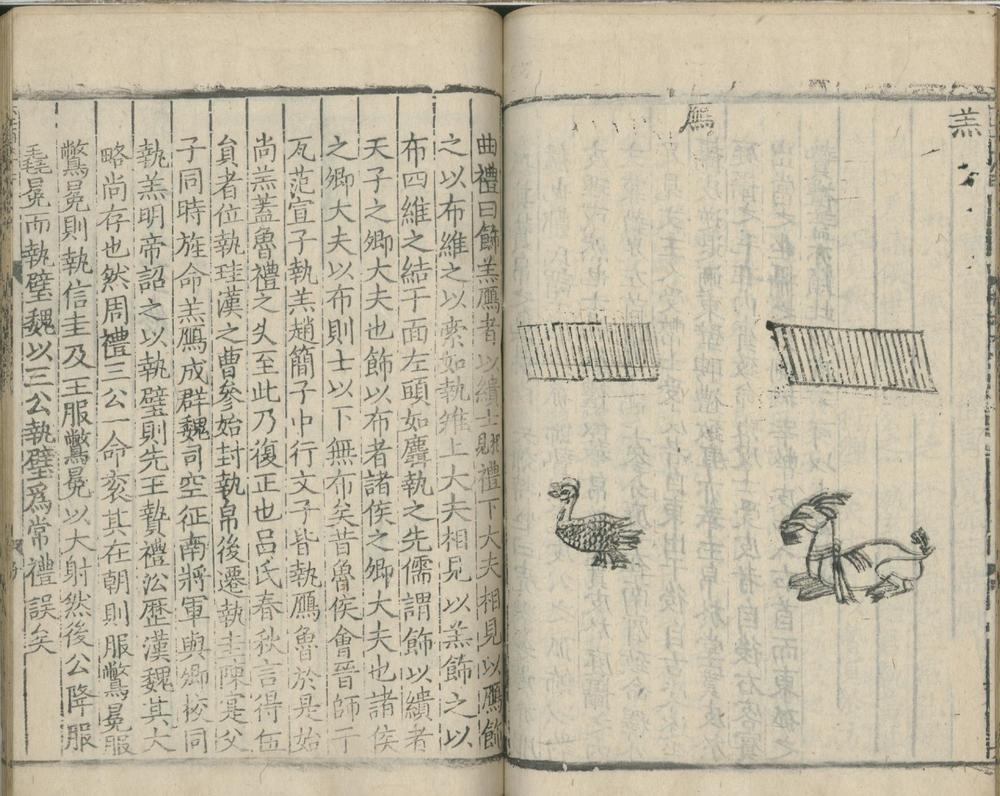 羔
鴈
曲禮曰飾羔鴈者以繢士相見禮下大夫相見以鴈飾
之以布維之以索如執雉上大夫相見以羔飾之以
布四維之結于面左頭如麛執之先儒謂飾以繢者
天子之卿大夫也飾以布者諸侯之卿大夫也諸侯
之卿大夫以布則士以下無布矣昔魯侯會晉師于
瓦范宣子執羔趙簡子中行文子皆執鴈魯於是始
尚羔蓋魯禮之失至此乃復正也呂氏春秋言得伍
員者位執珪漢之曹參始封執帛後遷執圭陳寔父
子同時旌命羔鴈成群魏司空征南將軍與卿校同
執羔明帝詔之以執璧則先王贄禮㳂歷漢魏其大
略尚存也然周禮三公一命衮其在朝則服鷩冕服
鷩冕則執信圭及王服鷩冕以大射然後公降服
毳冕而執璧魏以三公執璧爲常禮誤矣